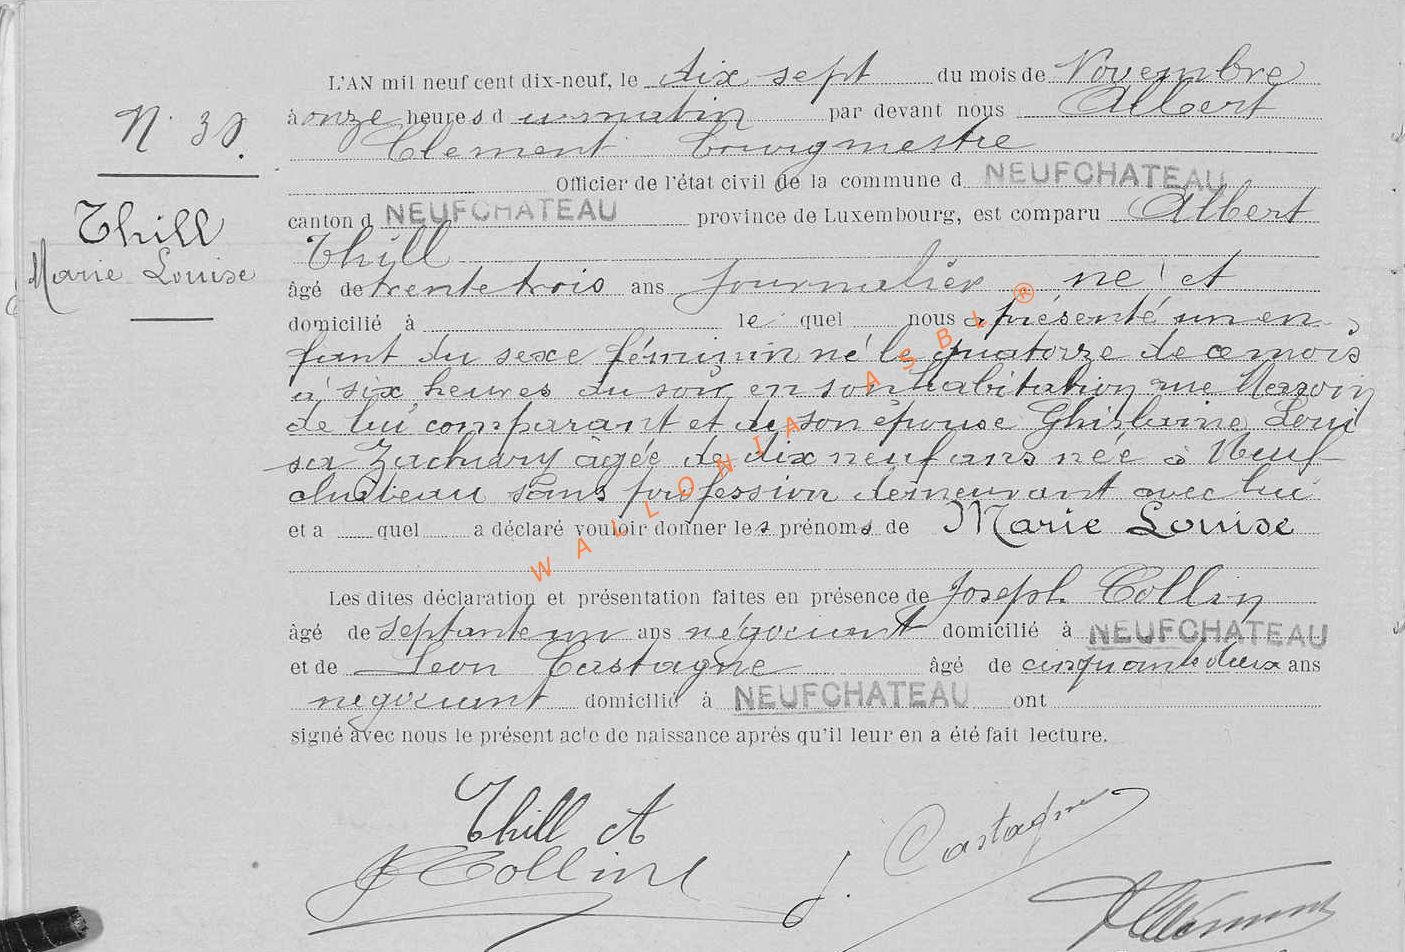 L'AN mil neuf cent dix-neuf, le dix sept du mois de Novembre
à onze heures du matin par devant nous Albert
Clement bourgmestre
Officier de l'état civil de la commune d NEUFCHATEAU
canton d NEUFCHATEAU province de Luxembourg, est comparu Albert
Thill
âgé de trente trois ans journalier né et
domicilié à le quel nous a présenté un en
fant du sexe féminin né le quatorze de ce mois
à six heures du soir en son habitation rue
de lui comparant et de son épouse Ghislaine Loui
sa Zachary âgée de dix neuf ans née à Neuf
château sans profession demeurant avec lui
et a quel a déclaré vouloir donner les prénoms de Marie Louise
Les dites déclaration et présentation faites en présence de Joseph Collin
âgé de septante un ans négociant domicilié à NEUFCHATEAU
et de Leon Castagne âgé de cinquante deux ans
négociant domicilié à NEUFCHATEAU ont
signé avec nous le présent acte de naissance après qu'il leur en a été fait lecture.
N.
Thill
Marie Louise
WALLONIA ASBL ®
Thill A
J Collin
J. Castagne